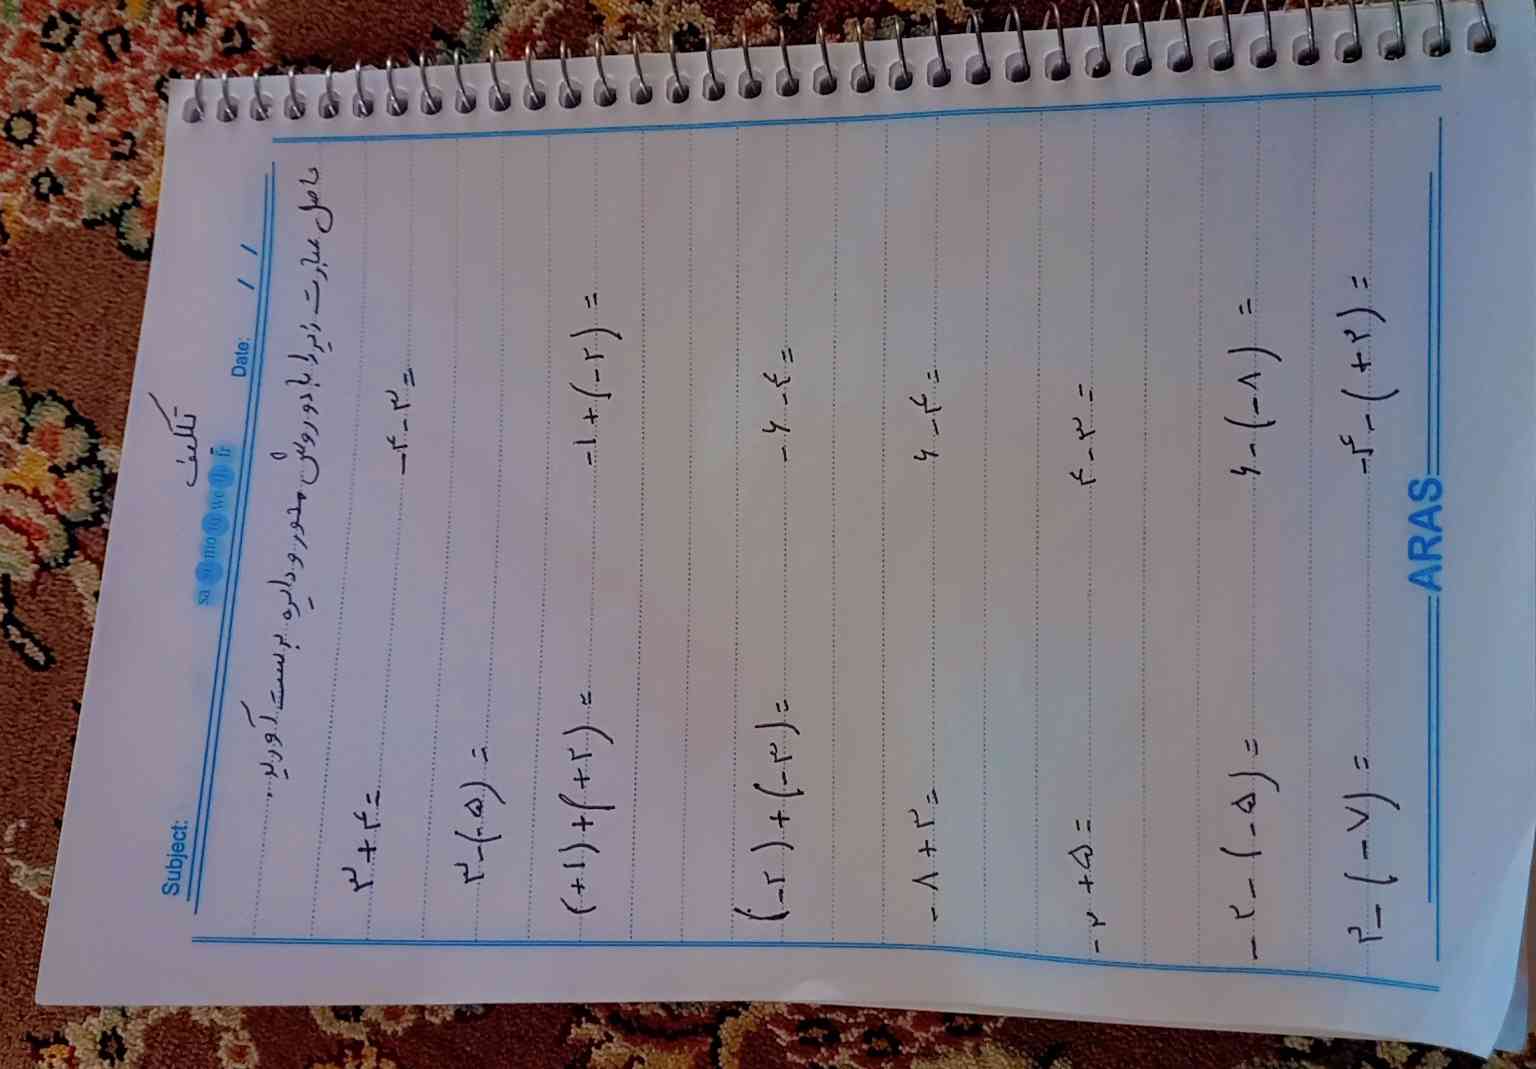 تکلیف
Subject:
sa su mo tu we th fr
Date: / /
حاصل عبارت زیر را با دو روش محور و دایره بدست آورید.
۳+۴= -۴-۳=
۳-(-۵)=
(+۱)+(+۲)= -۱+(-۲)=
(-۲)+(-۳)= -۶-۴=
-۸+۲= ۶-۴=
-۲+۵= ۴-۳=
-۲-(-۵)= ۶-(-۸)=
۳-(-۷)= -۴-(+۲)=
ARAS